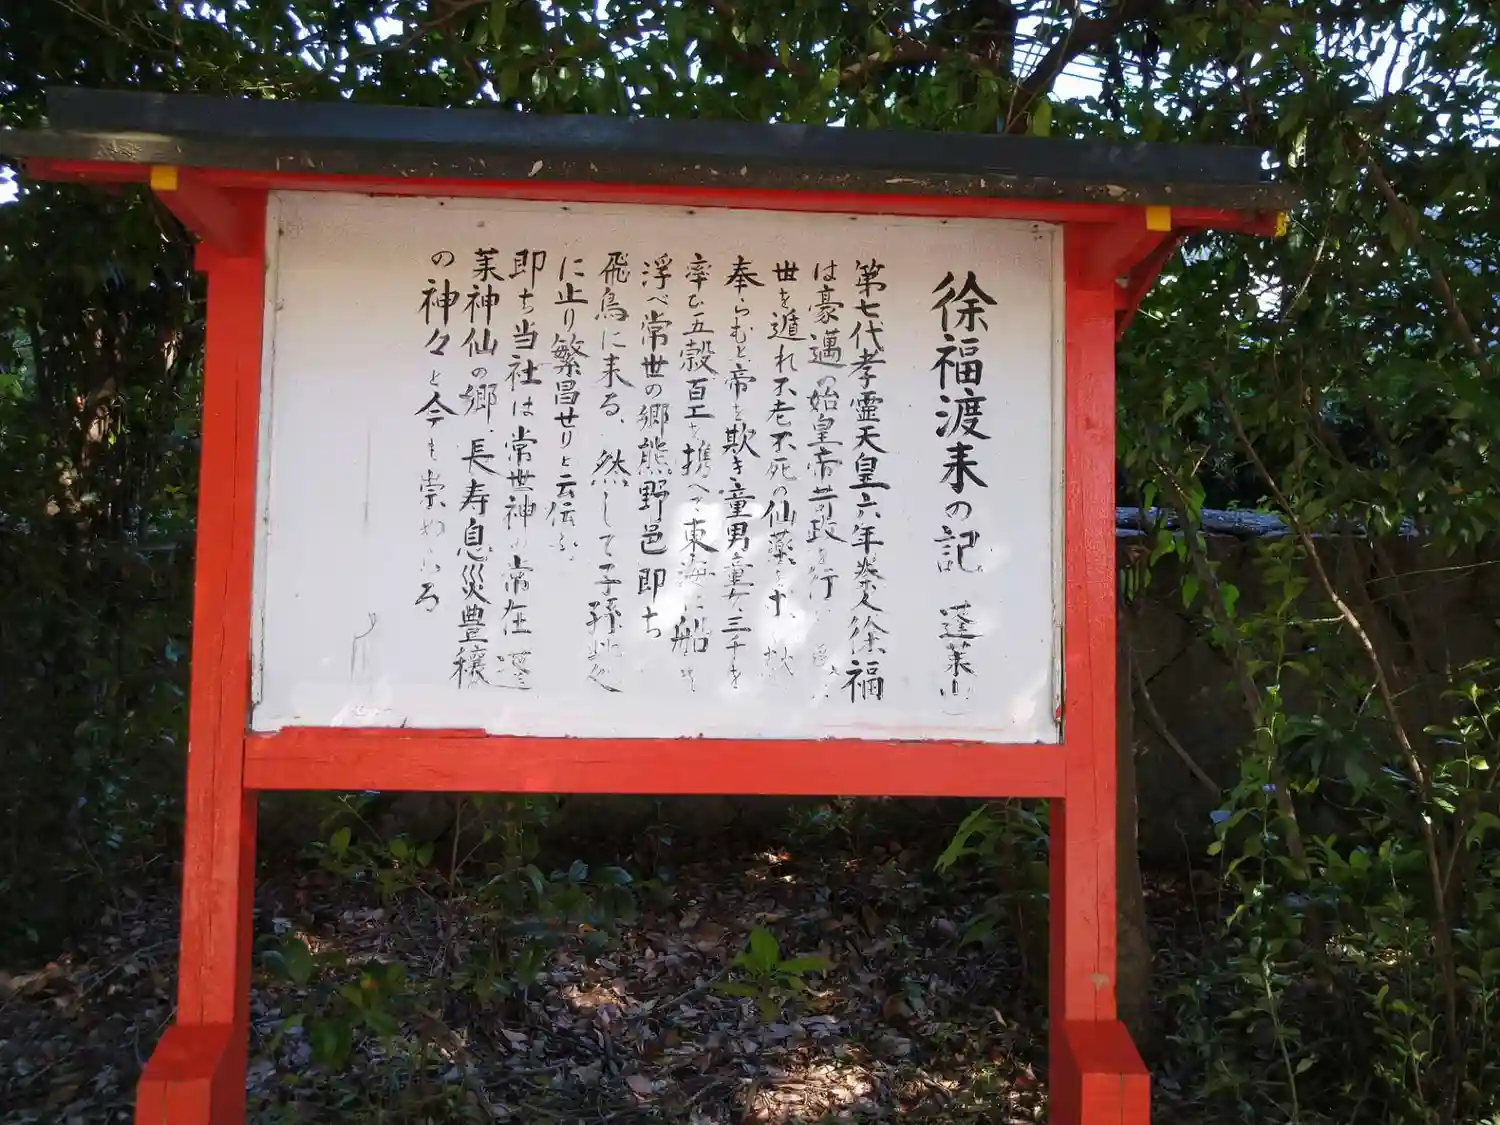 徐福渡来の記 蓬莱山
第七代孝霊天皇六年秦人徐福
は豪邁の始皇帝苛政を行
世を遁れ不老不死の仙薬を
奉らむと帝を欺き童男童女三千を
率ひ五穀百工を携へて東海に船を
浮べ常世の郷熊野邑即ち
飛鳥に来る、然して子孫
に止り繁昌せりと云伝ふ、
即ち当社は常世神の常在蓬
莱神仙の郷、長寿息災豊穣
の神々と今も崇めらる